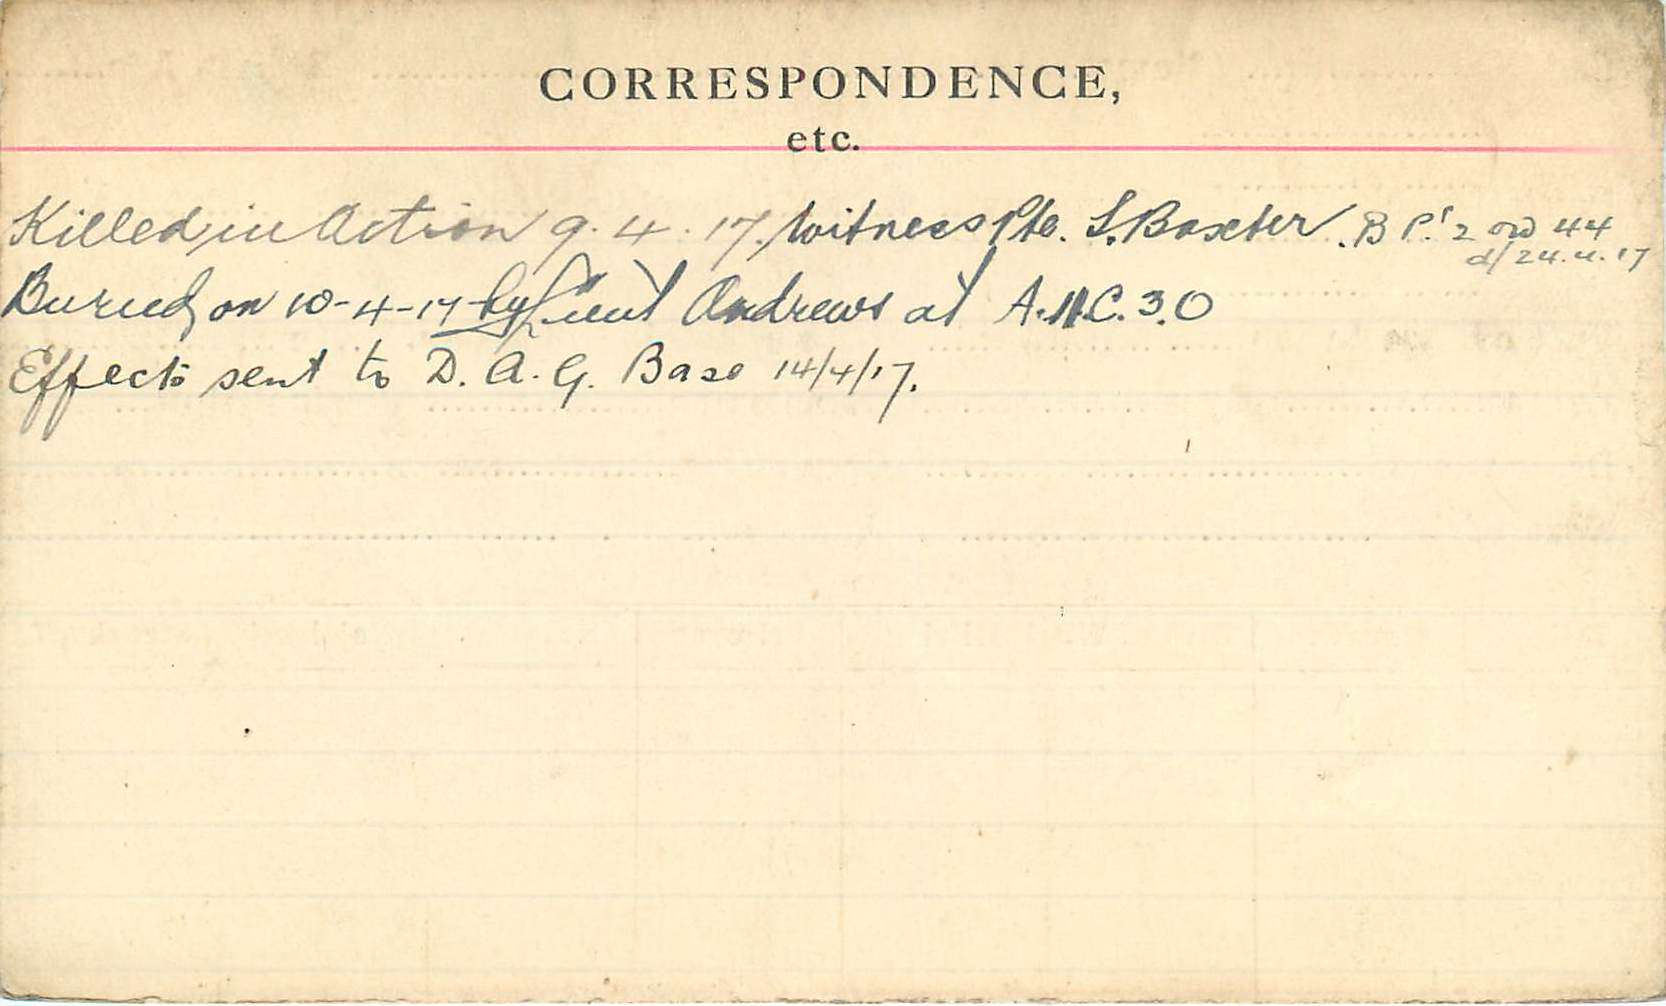 CORRESPONDENCE,
etc.
Killed in Action 9.4.17. Witness Pte. S. Baxter. B P! 2 ord 44
d/24.4.17
Buried on 10-4-17 by Lieut Andrews at A.N.C. 3.0
Effects sent to D. A. G. Base 14/4/17.